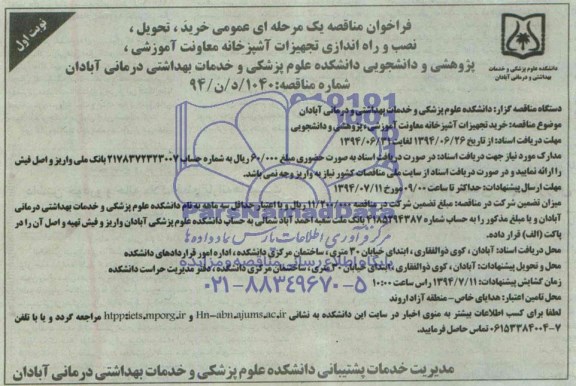 نوبت اول
دانشکده علوم پزشکی و خدمات
بهداشتی و درمانی آبادان
فراخوان مناقصه یک مرحله ای عمومی خرید ، تحویل ،
نصب و راه اندازی تجهیزات آشپزخانه معاونت آموزشی ،
پژوهشی و دانشجویی دانشکده علوم پزشکی و خدمات بهداشتی درمانی آبادان
شماره مناقصه: ۱۰۴۰/د/ن/۹۴
دستگاه مناقصه گزار: دانشکده علوم پزشکی و خدمات بهداشتی و درمانی آبادان
موضوع مناقصه: خرید تجهیزات آشپزخانه معاونت آموزشی، پژوهشی و دانشجویی
مهلت دریافت اسناد: از تاریخ ۱۳۹۴/۰۶/۲۶ لغایت ۱۳۹۴/۰۶/
مدارک مورد نیاز جهت دریافت اسناد: در صورت دریافت اسناد به صورت حضوری مبلغ ۶۰/۰۰۰ ریال به شماره حساب ۲۱۷۸۳۷۲۳۲۳۰۰۷ بانک ملی واریز و اصل فیش
را ارائه نمایید و در صورت دریافت اسناد از سایت ملی مناقصات کشور نیاز به واریز وجه نمی باشد.
مهلت ارسال پیشنهادات: حداکثر تا ساعت ۰۹/۰۰ مورخ ۱۳۹۴/۰۷/۱۱
میزان تضمین شرکت در مناقصه: مبلغ تضمین شرکت در مناقصه ۱۱/۲۰۰/۰۰۰ ریال و با اعتبار حداقل سه ماهه به نام دانشکده علوم پزشکی و خدمات بهداشتی درمانی
آبادان و یا مبلغ مذکور را به حساب شماره بانک رفاه شعبه احمد آباد شمالی به حساب دانشکده علوم پزشکی آبادان واریز و فیش تهیه و اصل آن را در
پاکت (الف) قرار داده.
محل دریافت اسناد: آبادان ، کوی ذوالفقاری ، ابتدای خیابان ۳۰ متری ، ساختمان مرکزی دانشکده ، اداره امور قراردادهای دانشکده
محل و تحویل پیشنهادات: آبادان ، کوی ذوالفقاری ، ابتدای خیابان ۳۰ متری ، ساختمان مرکزی دانشکده ، دفتر مدیریت حراست دانشکده
زمان گشایش پیشنهادات: ۱۳۹۴/۷/۱۱ راس ساعت ۱۰:۰۰
محل تامین اعتبار: هدایای خاص- منطقه آزاد اروند
لطفا برای کسب اطلاعات بیشتر به منوی اخبار در سایت این دانشکده به نشانی Hn-abn.ajums.ac.ir و htpp:iets.mporg.ir مراجعه گردد و یا با تلفن
۰۶۱۵۳۳۸۴۰۰۴-۷ تماس حاصل فرمایید.
مدیریت خدمات پشتیبانی دانشکده علوم پزشکی و خدمات بهداشتی درمانی آبادان
ParsNamadData
مرکز فرآوری اطلاعات پارس نماد داده ها
پایگاه اطلاع رسانی مناقصه و مزایده
۰۲۱-۸۸۳۴۹۶۷۰-۵